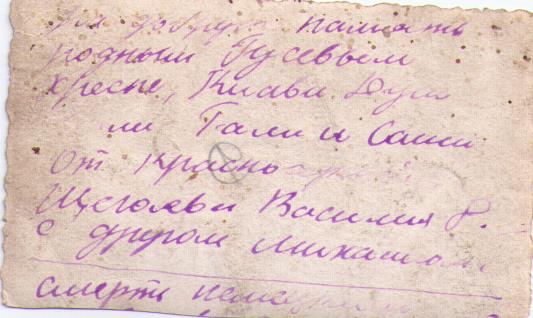 на добрую память
родным Гусевым
хресне, Клави Дуси
ли Гали и Саши
От Красно
Щеголеви Василия
с другом Михаилом
смерть